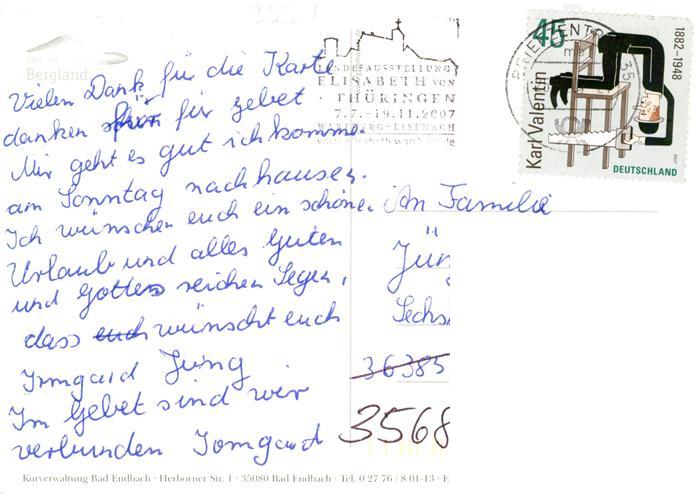 Lahn-Dill
Bergland
Vielen Dank für die Karte
danken für für gebet
Mir geht es gut ich komme
am Sonntag nachhausen.
Ich wünschen euch ein schöne
Urlaub und alles Guten
und Gottes reichen Segen,
dass euch wünscht euch
Irmgard Jung
Im Gebet sind wir
verbunden Irmgard
LANDESAUSSTELLUNG
ELISABETH VON
THÜRINGEN
7.7.-19.11.2007
WARTBURG-EISENACH
BRIEFZENTR
35
45
Karl Valentin
1882-1948
DEUTSCHLAND
2007
An Familie
Jün
Sechs
36385
3568
Kurverwaltung Bad Endbach · Herborner Str. 1 · 35080 Bad Endbach · Tel. 0 27 76 / 8 01-13 · E